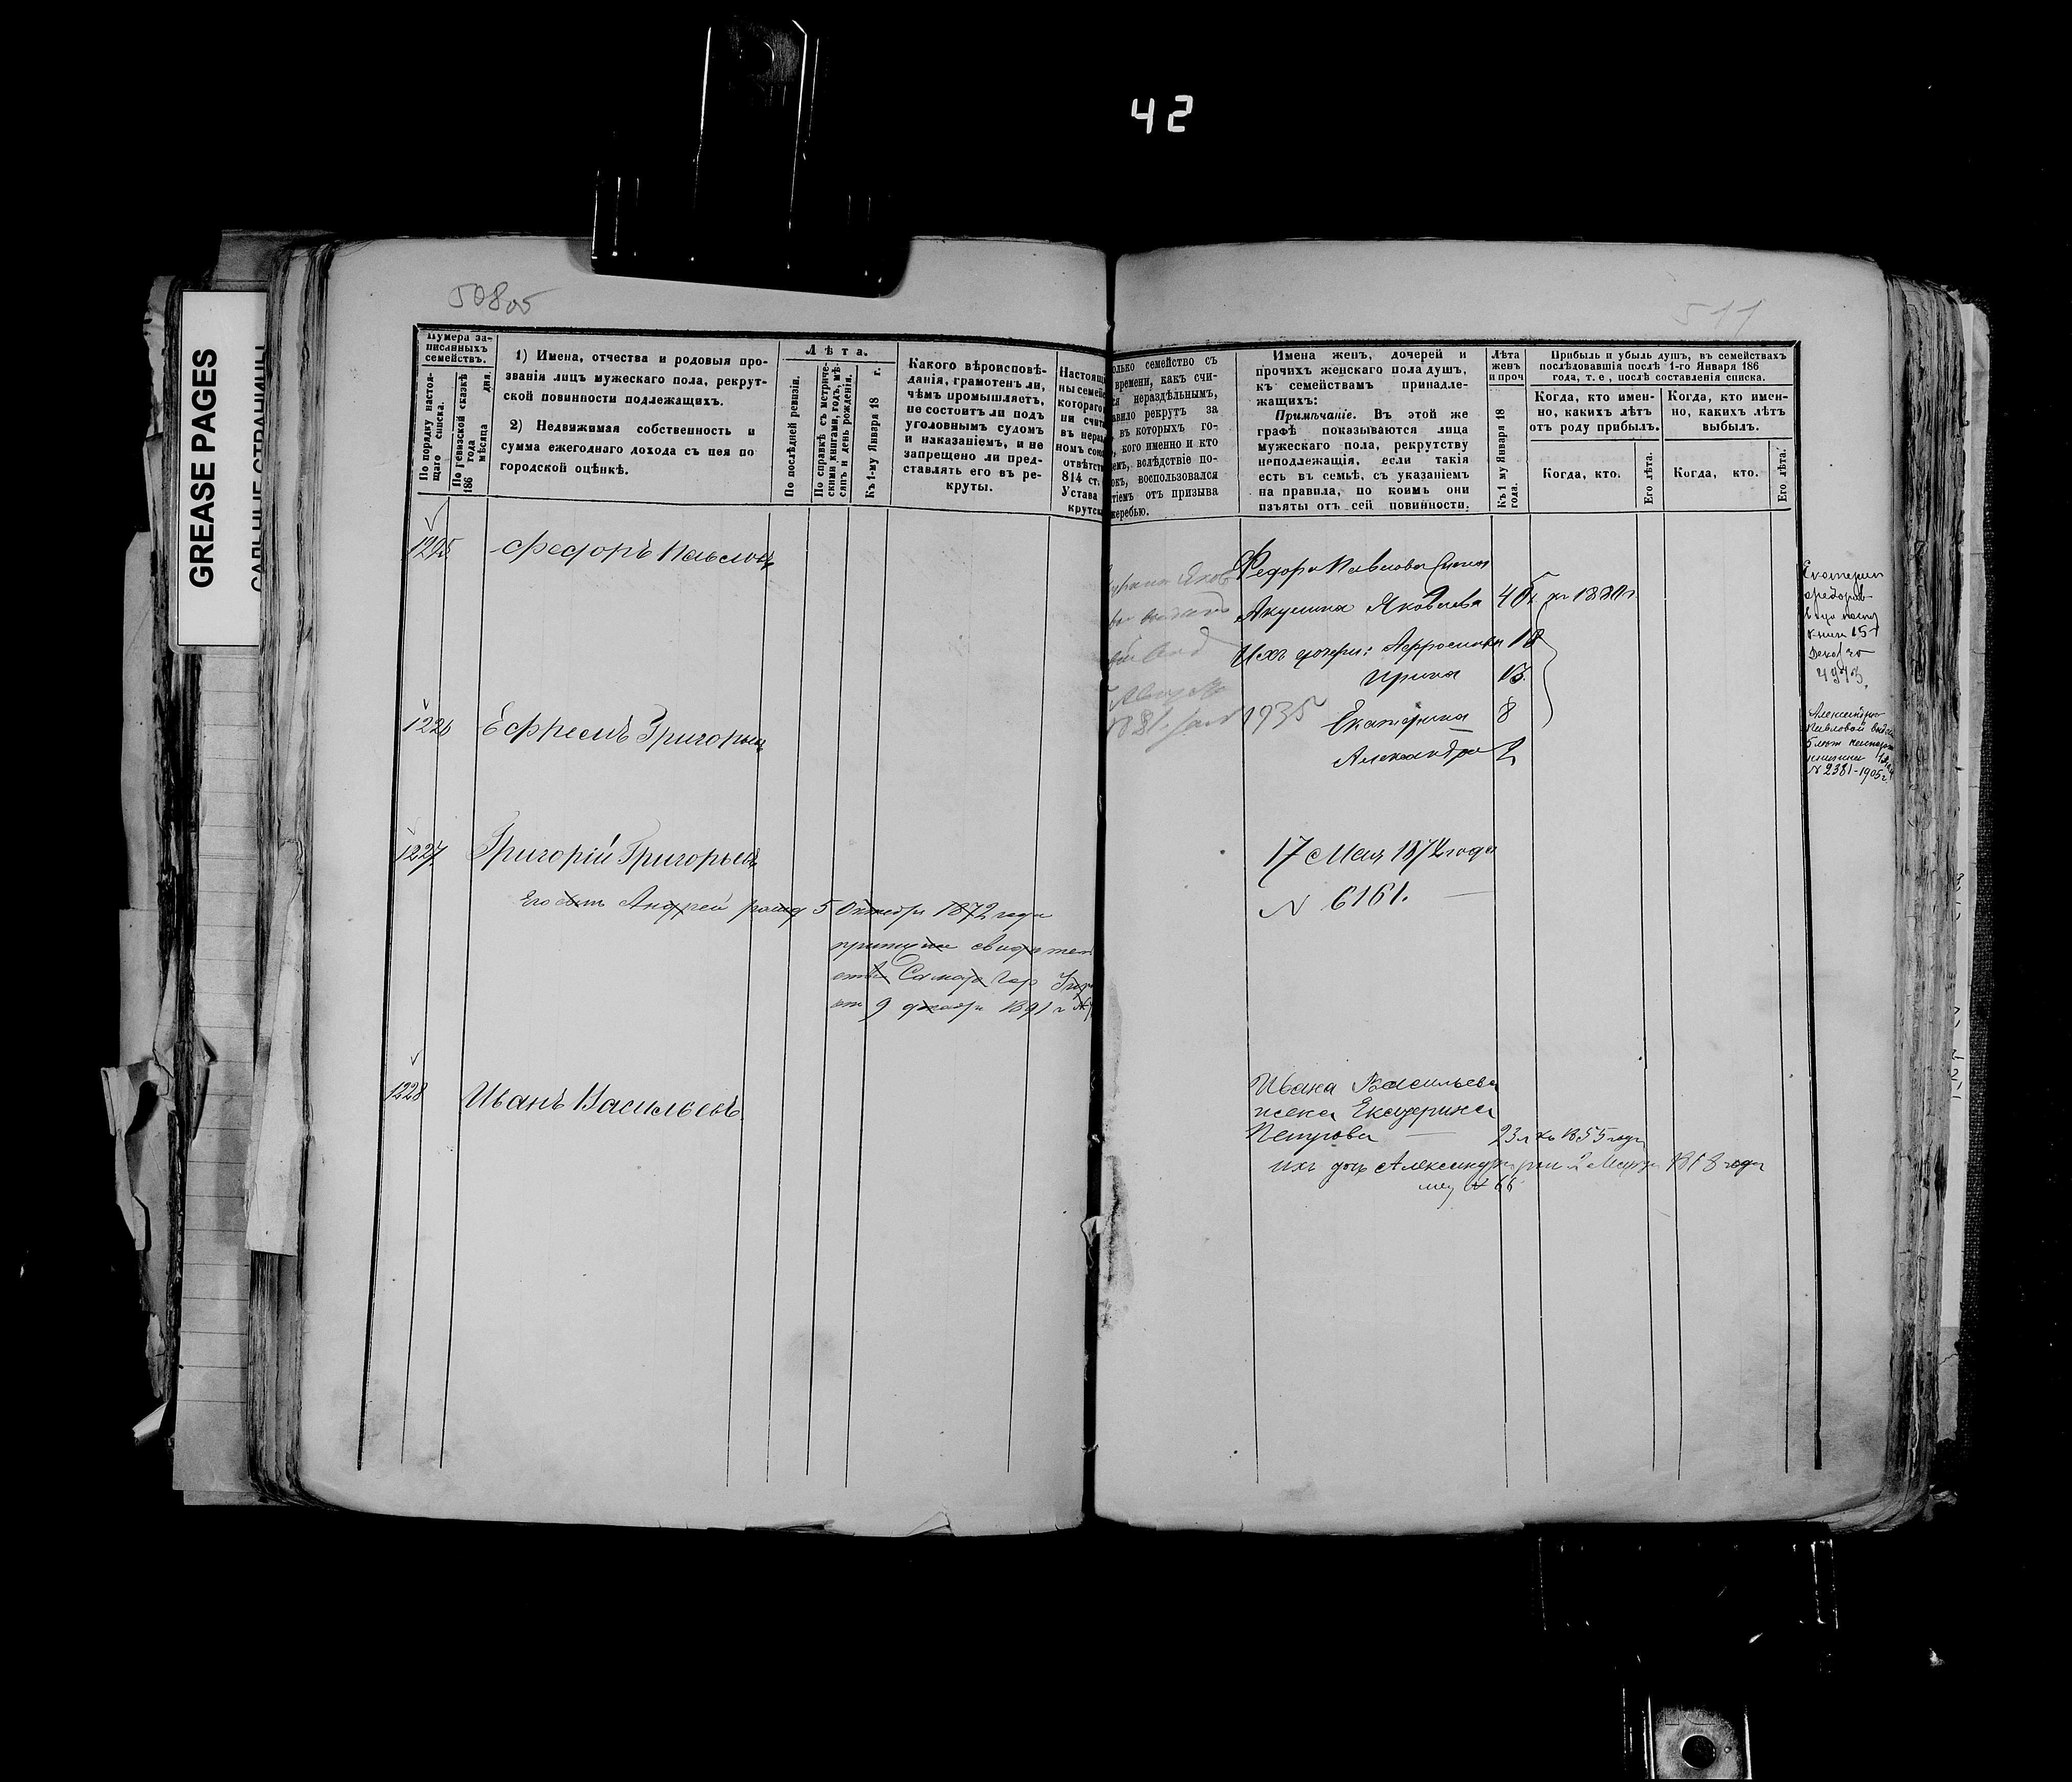 42
GREASE PAGES
511
Нумера за-
писанныхъ
семействъ.
По порядку настоя-
щаго списка.
По ревизской сказкѣ
186 года
мѣсяца
дня.
1) Имена, отчества и родовыя про-
званія лицъ мужескаго пола, рекрут-
ской повинности подлежащихъ.
2) Недвижимая собственность и
сумма ежегоднаго дохода съ нея по
городской оцѣнкѣ.
Лѣта.
По послѣдней ревизіи.
По справкѣ съ метриче-
скими книгами, годъ, мѣ-
сяцъ и день рожденія.
Къ 1-му Января 18 г.
Какого вѣроисповѣ-
данія, грамотенъ ли,
чѣмъ промышляетъ,
не состоитъ ли подъ
уголовнымъ судомъ
и наказаніемъ, и не
запрещено ли пред-
ставлять его въ ре-
круты.
Настоящ
ны семей
котораго
ни счит
въ нераз
номъ сою
отвѣтст
814 ст.
Устава
крутск
олько семейство съ
времени, какъ счи-
ся нераздѣльнымъ,
авило рекрутъ за
въ которыхъ го-
кого именно и кто
емъ, вслѣдствіе по-
окъ, воспользовался
тіемъ отъ призыва
жеребью.
Имена женъ, дочерей и
прочихъ женскаго пола душъ,
къ семействамъ принадле-
жащихъ:
Примѣчаніе. Въ этой же
графѣ показываются лица
мужескаго пола, рекрутству
неподлежащія, если такія
есть въ семьѣ, съ указаніемъ
на правила, по коимъ они
изъяты отъ сей повинности.
Лѣта
женъ
и проч
Къ 1 му Января 18
года.
Прибыль и убыль душъ, въ семействахъ
послѣдовавшія послѣ 1-го Января 186
года, т. е., послѣ составленія списка.
Когда, кто имен-
но, какихъ лѣтъ
отъ роду прибылъ.
Когда, кто имен-
но, какихъ лѣтъ
выбылъ.
Когда, кто.
Его лѣта.
Когда, кто.
Его лѣта.
1225 Федоръ Павловъ
Федора Павлова жена
Акулина Яковлева 45 къ 1880г
Ихъ дочери: Афросинья 18
Ирина 13.
1935 Екатерина 8
Александра 2
1226 Ефремъ Григорьевъ
1227 Григорій Григорьевъ
Его сынъ Андрей 5 Октября 1872 года
от 9 декабря 1891 г
17 Мая 1872 года
N 6161.
1228 Иванъ Васильевъ
Ивана Васильева
жена Екатерина
Петрова 23 л къ 1855 году
ихъ дочь Александра 2 Марта года
N 66
Екатерин
Федоров
1913.
Александра
Павловой
N 2381-1905 г.